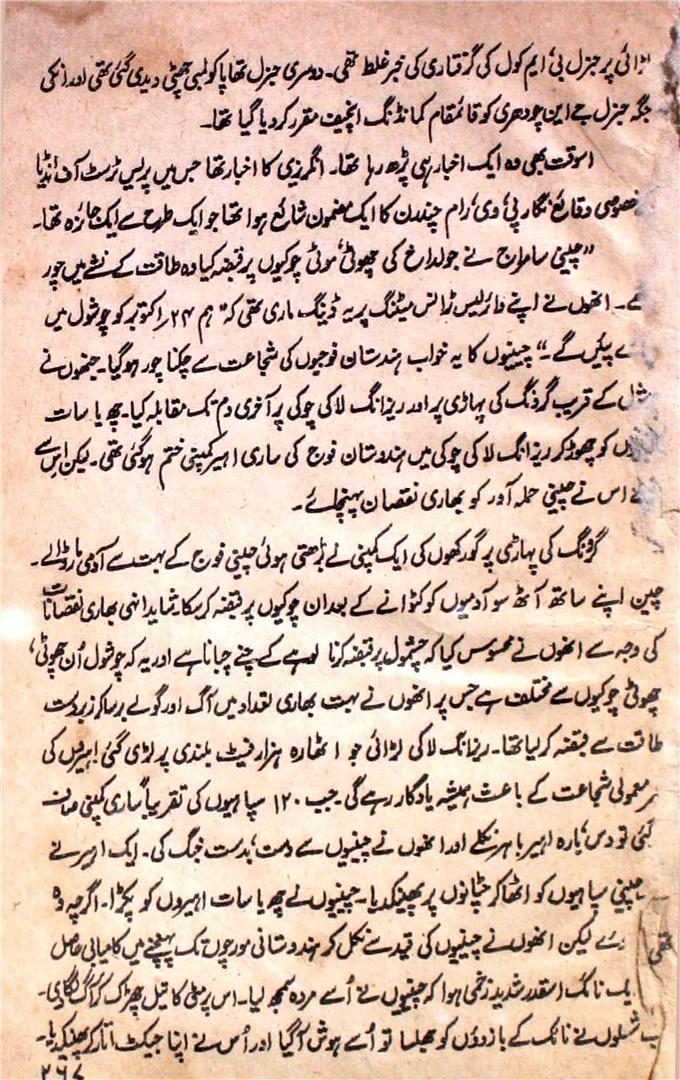 پر جنرل بی ایم کول کی گرفتاری کی خبر غلط تھی۔ دوسری جنرل تھاپا کو لمبی چھٹی دیدی گئی تھی اور انکی
جگہ جنرل جے این چودھری کو قائمقام کمانڈنگ انچیف مقرر کر دیا گیا تھا۔
اسوقت بھی وہ ایک اخبار ہی پڑھ رہا تھا۔ انگریزی کا اخبار تھا جس میں پریس ٹرسٹ آف انڈیا
خصوصی وقائع نگار پی وی رام چندن کا ایک مضمون شائع ہوا تھا جو ایک طرح سے ایک جائزہ تھا۔
”چینی سامراج نے جو لداخ کی چھوٹی موٹی چوکیوں پر قبضہ کیا وہ طاقت کے نشے میں چور
انھوں نے اپنے وائرلیس ٹرانس میٹنگ پر یہ ڈینگ ماری تھی کہ ”ہم ۲۴ اکتوبر کو چوشول میں
پئیں گے۔“ چینیوں کا یہ خواب ہندستان فوجیوں کی شجاعت سے چکنا چور ہو گیا۔ جنھوں نے
کے قریب گرنگ کی پہاڑی پر اور ریزانگ لا کی چوکی پر آخری دم تک مقابلہ کیا۔ چھ یا سات
کو چھوڑ کر ریزانگ لا کی چوکی میں ہندوستان فوج کی ساری اہیر کمپنی ختم ہو گئی تھی۔ لیکن اس سے
اس نے چینی حملہ آور کو بھاری نقصان پہنچائے۔
گرنگ کی پہاڑی پر گورکھوں کی ایک کمپنی نے بڑھتی ہوئی چینی فوج کے بہت سے آدمی مار ڈالے۔
چین اپنے ساتھ آٹھ سو آدمیوں کو کٹوانے کے بعد ان چوکیوں پر قبضہ کر سکا۔ شاید انہی بھاری نقصانات
کی وجہ سے انھوں نے محسوس کیا کہ چشول پر قبضہ کرنا لوہے کے چنے چبانا ہے اور یہ کہ چوشول اُن چھوٹی
چھوٹی چوکیوں سے مختلف ہے جس پر انھوں نے بہت بھاری تعداد میں آگ اور گولے برسا کر زبردست
طاقت سے قبضہ کر لیا تھا۔ ریزانگ لا کی لڑائی جو اٹھارہ ہزار فیٹ بلندی پر لڑی گئی اہیروں کی
معمولی شجاعت کے باعث ہمیشہ یادگار رہے گی۔ جب ۱۲۰ سپاہیوں کی تقریباً ساری کمپنی صاف
گئی تو دس بارہ اہیر باہر نکلے اور انھوں نے چینیوں سے دست بدست جنگ کی۔ ایک اہیر نے
چینی سپاہیوں کو اٹھا کر چٹانوں پر پھینکدیا۔ چینیوں نے چھ یا سات اہیروں کو پکڑا۔ اگرچہ وہ
لیکن انھوں نے چینیوں کی قید سے نکل کر ہندوستانی مورچوں تک پہنچنے میں کامیابی حاصل
نانک اسقدر شدید زخمی ہوا کہ چینیوں نے اُسے مردہ سمجھ لیا۔ اس پر مٹی کا تیل چھڑک کر آگ لگا دی۔
شعلوں نے نانک کے بازوؤں کو جھلسا تو اُسے ہوش آگیا اور اُس نے اپنا جیکٹ اتار کر پھینکدیا۔
۲۶۷